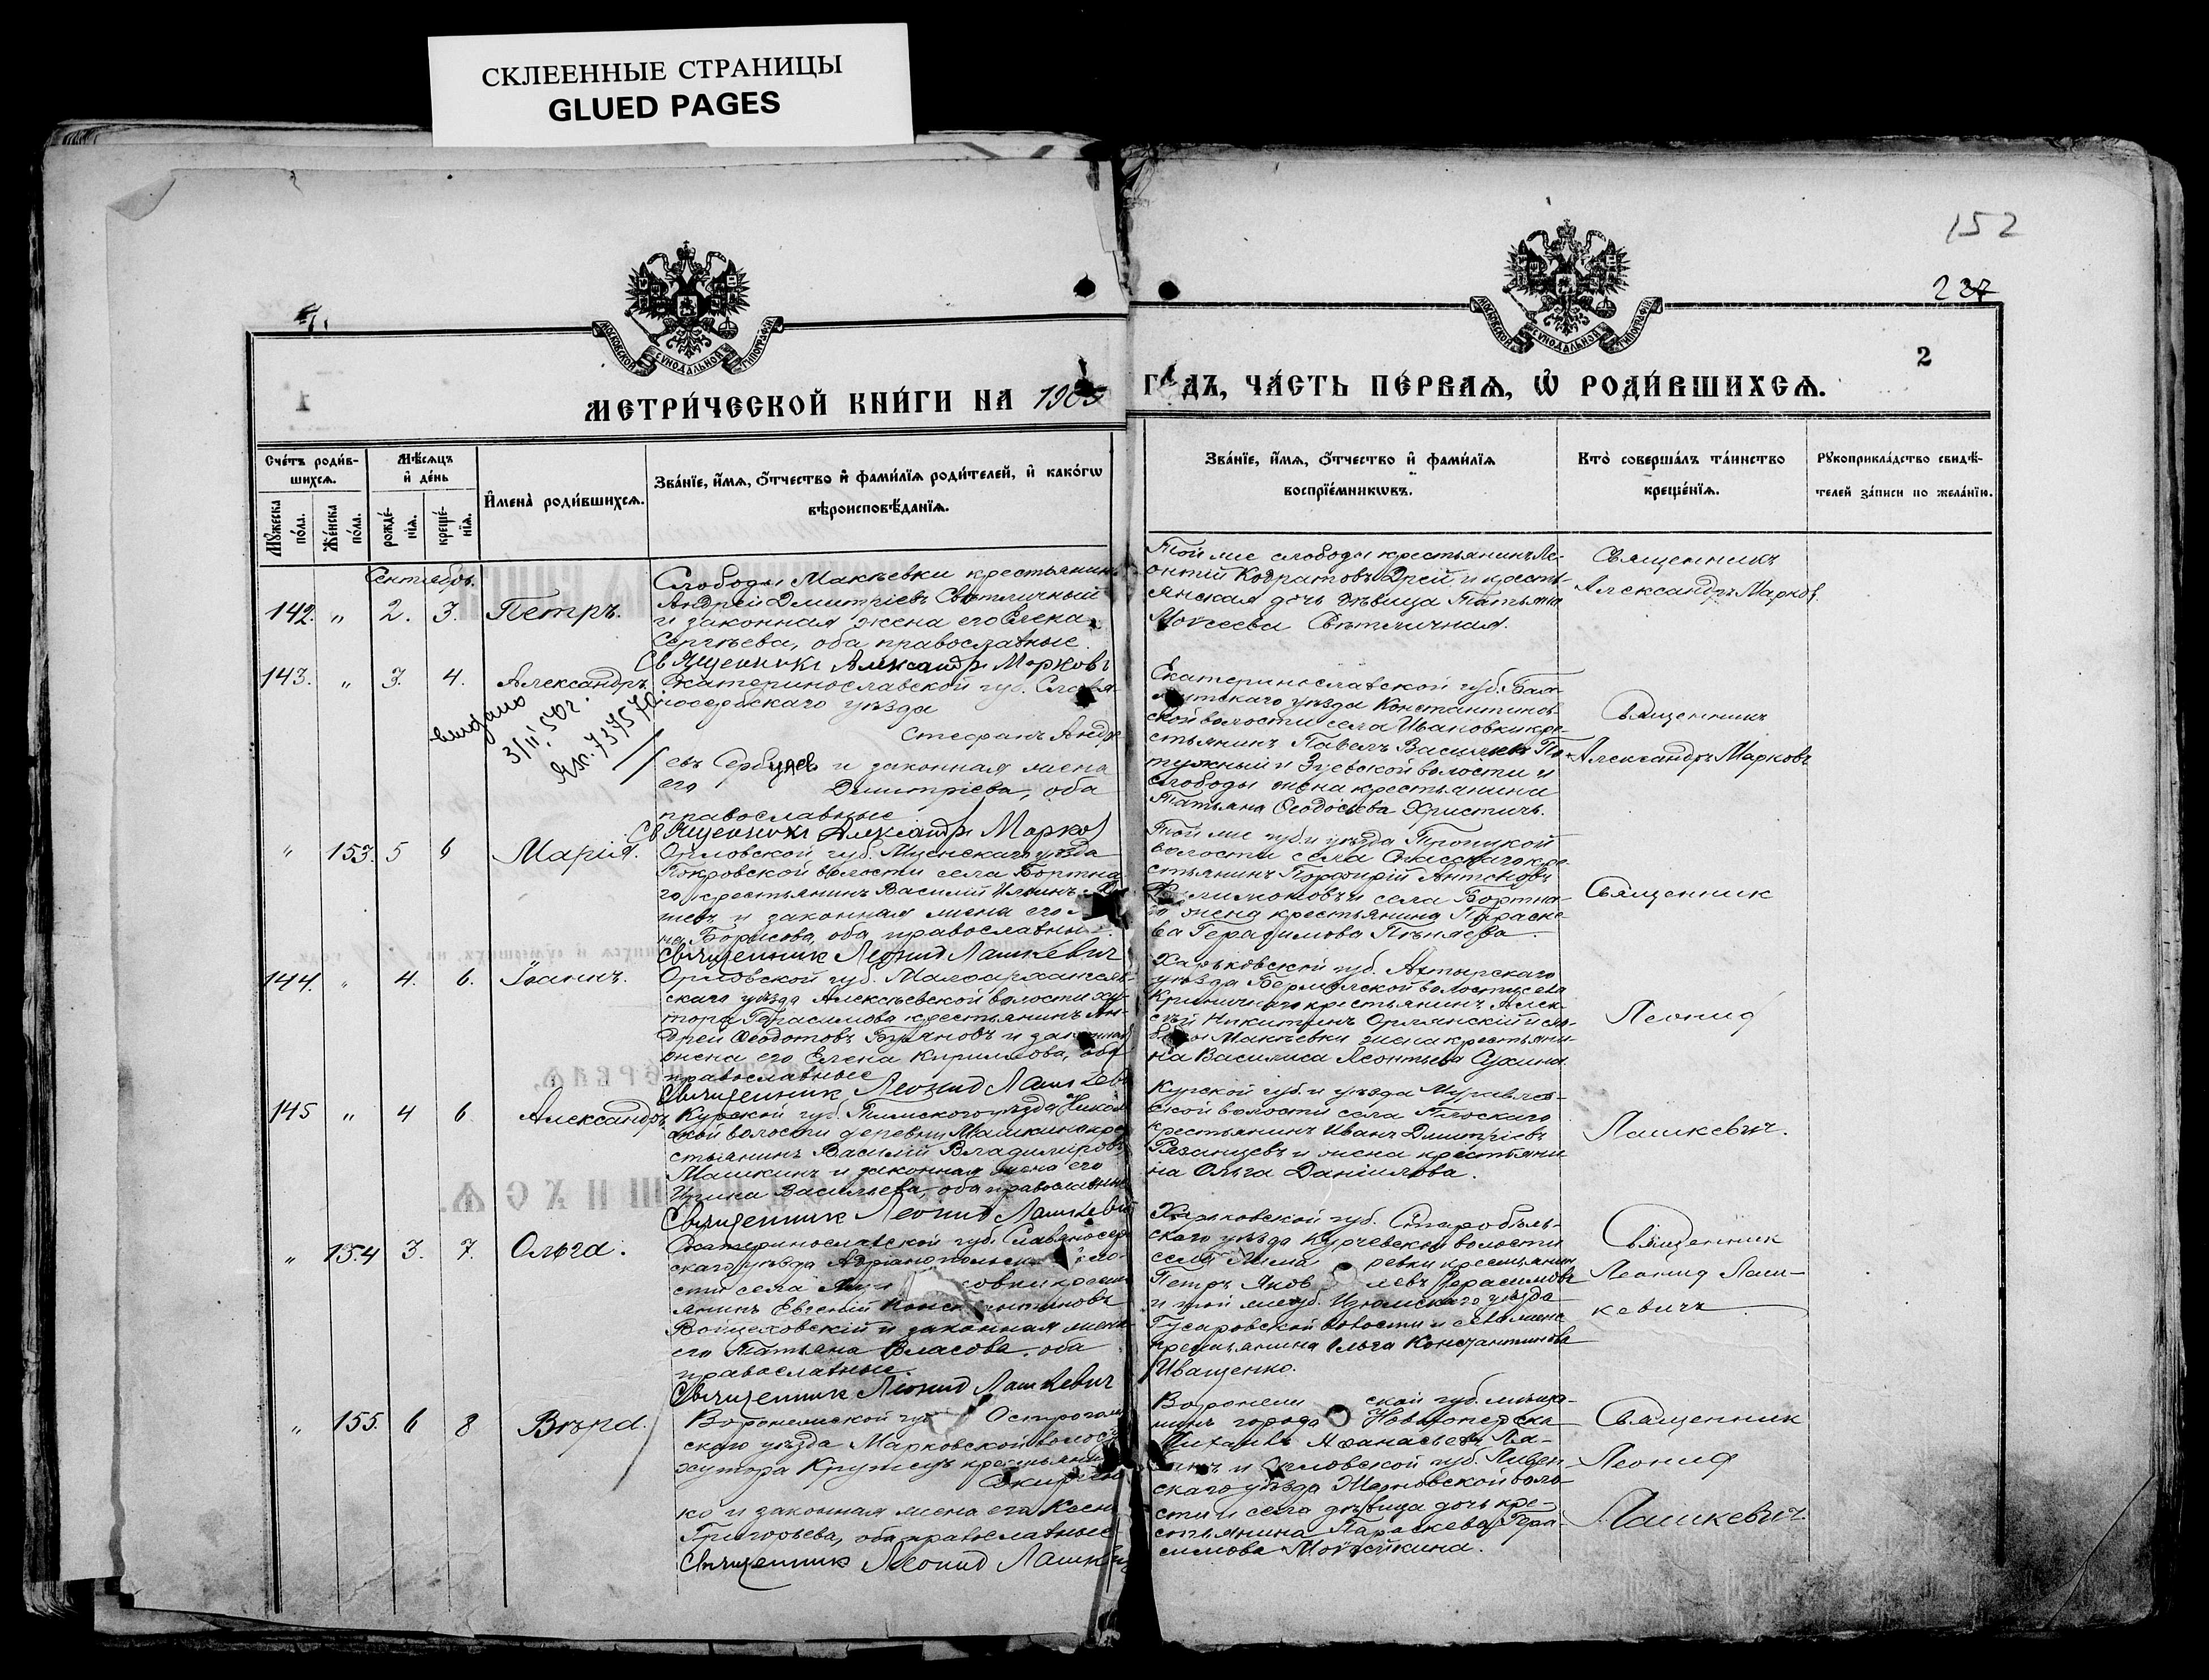 СКЛЕЕННЫЕ СТРАНИЦЫ
GLUED PAGES
152
227
2
МОСКОВСКОЙ СѴНОДАЛЬНОЙ ТИПОГРАФІИ
МОСКОВСКОЙ СѴНОДАЛЬНОЙ ТИПОГРАФІИ
МЕТРИ́ЧЕСКОЙ КНИ́ГИ НА 1905
ГОДЪ, ЧА́СТЬ ПЕ́РВАѦ, Ѽ РОДИ́ВШИХСѦ.
Сче́тъ роди́вшихсѧ.
Мꙋ́жеска по́ла.
Же́нска по́ла.
Мѣ́сѧцъ и҆ де́нь
рожде́нїѧ.
креще́нїѧ.
И҆мена̀ роди́вшихсѧ.
Зва́нїе, и҆́мѧ, ѻ҆́тчество и҆ фами́лїѧ роди́телей, и҆ како́гѡ
вѣроисповѣ́данїѧ.
Зва́нїе, и҆́мѧ, ѻ҆́тчество и҆ фами́лїѧ
воспрїе́мникѡвъ.
Кто̀ соверша́лъ та́инство
креще́нїѧ.
Рꙋкоприкла́дство свидѣ́-
телей за́писи по жела́нїю.
Сентябрь.
142. " 2. 3. Петръ.
Слободы Макѣевки крестьянинъ
Андрей Дмитріевъ Свѣтличный
и законная жена его Елена
Сергѣева, оба православные.
Священникъ Александръ Марковъ
Той же слободы крестьянинъ Ле-
онтій Кодратовъ Дрей и кресть-
янская дочь дѣвица Татьяна
Моѵсеева Свѣтличная.
Священникъ
Александръ Марковъ.
143. " 3. 4. Александръ
выдано
3/II 50г.
ЯХ. 737570
Екатеринославской губ. Славя-
носербскаго уѣзда
Стефанъ Андре-
евъ и законная жена
его Дмитріева, оба
православные
Священникъ Александръ Марков
Екатеринославской губ. Бах-
мутскаго уѣзда Константинов-
ской волости села Ивановки кре-
стьянинъ Павелъ Васильевъ По-
тужный и Зуевской волости и
слободы жена крестьянина
Татьяна Ѳеодосьева Христичъ.
Священникъ
Александръ Марковъ
" 153. 5 6 Марія.
Орловской губ. Мценскаго уѣзда
Покровской волости села Бортна-
го крестьянинъ Василій Ильинъ
и законная жена его
на Борисова, оба православные.
Священник Леонид Лашкевич
Той же губ. и уѣзда Троицкой
волости села Спасскаго кре-
стьянинъ Порфирій Антоновъ
Филимоновъ и села Бортна-
го жена крестьянина Параске-
ва Герасимова Пѣняева.
Священник
144. " 4. 6. Іоаннъ.
Орловской губ. Малоархангель-
скаго уѣзда Алексѣевской волости ху-
тора Герасимова крестьянинъ Ан-
дрей Ѳеодотовъ Буяновъ и законная
жена его Елена Кириллова, оба
православные
Священник Леонид Лашкевич
Харьковской губ. Ахтырскаго
уѣзда волости села
Криничнаго крестьянинъ Алек-
сѣй Никитинъ Орлянскій и сло-
боды Макѣевки жена крестьяни-
на Василиса Леонтьева Сухина.
Леонид
145 " 4 6 Александръ
Курской губ. Тимскаго уѣзда Никол-
ской волости деревни Машкиной кре-
стьянинъ Василій Владиміровъ
Машкинъ и законная жена его
Ирина Васильева, оба православные
Священник Леонид Лашкевич
Курской губ. и уѣзда Муравлев-
ской волости села Плоскаго
крестьянинъ Иванъ Дмитріевъ
Рязанцевъ и жена крестьяни-
на Ольга Даніилова.
Лашкевич.
" 154 3. 7. Ольга.
Екатеринославской губ. Славяносерб-
скаго уѣзда Адріанопольской воло-
сти села совки кресть-
янинъ Евгеній Константиновъ
Войцеховскій и законная жена
его Татьяна Власова, оба
православные.
Священник Леонид Лашкевич
Харьковской губ. Старобѣль-
скаго уѣзда волости
села ревки крестьянин
Петръ Яковлевъ Герасимовъ
и той же губ. Изюмскаго уѣзда
Гусаровской волости и села жена
крестьянина Ольга Константинова
Иващенко.
Священник
Леонид Лаш-
кевичъ
" 155. 6 8 Вѣра.
Воронежской губ. Острогож-
скаго уѣзда Марковской волости
хутора крестьянинъ
ко и законная жена его Ксенія
Григорьева, оба православные
Священник Леонид Лашкевич
Воронежской губ. мѣща-
нинъ города Новохоперска
Аѳанасьевъ
и Орловской губ. Ливен-
скаго уѣзда Жерновской воло-
сти и села дѣвица дочь кре-
стьянина Параскева Гера-
симова Мотяйкина.
Священник
Леонид
Лашкевич.